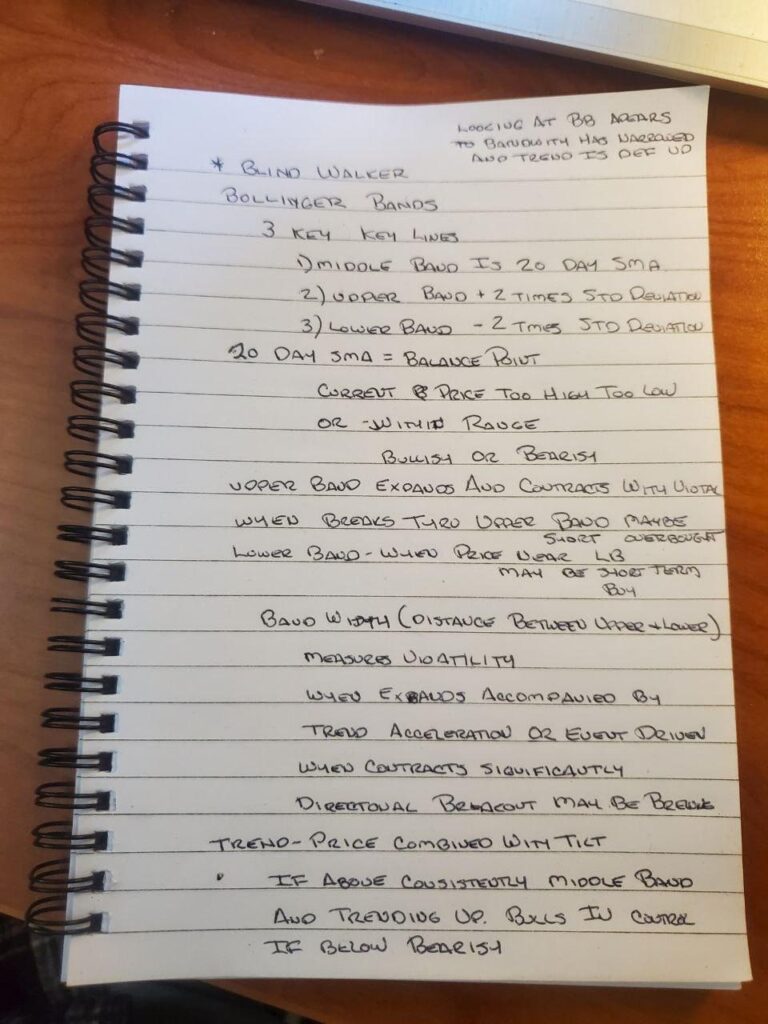 LOOKING AT BB APEARS
TO BANDWITH HAS NARROWED
AND TREND IS DEF UP
* BLIND WALKER
BOLLINGER BANDS
3 KEY KEY LINES
1) MIDDLE BAND IS 20 DAY SMA
2) UPPER BAND + 2 TIMES STD DEVIATION
3) LOWER BAND - 2 TMES STD DEVIATION
20 DAY SMA = BALANCE POINT
CURRENT PRICE TOO HIGH TOO LOW
OR - WITHIN RANGE
BULLISH OR BEARISH
UPPER BAND EXPANDS AND CONTRACTS WITH
WHEN BREAKS THRU UPPER BAND MAYBE
SHORT OVERBOUGHT
LOWER BAND - WHEN PRICE NEAR LB
MAY BE SHORT TERM
BUY
BAND WIDTH (DISTANCE BETWEEN UPPER + LOWER)
MEASURES VIOATILITY
WHEN EXPANDS ACCOMPANIED BY
TREND ACCELERATION OR EVENT DRIVEN
WHEN CONTRACTS SIGNIFICANTLY
DIRECTONAL BREAKOUT MAY BE
TREND - PRICE COMBINED WITH TILT
• IF ABOVE CONSISTENTLY MIDDLE BAND
AND TRENDING UP. BULLS IN CONTROL
IF BELOW BEARISH